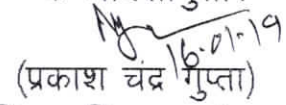 16-01-19
(प्रकाश चंद्र गुप्ता)